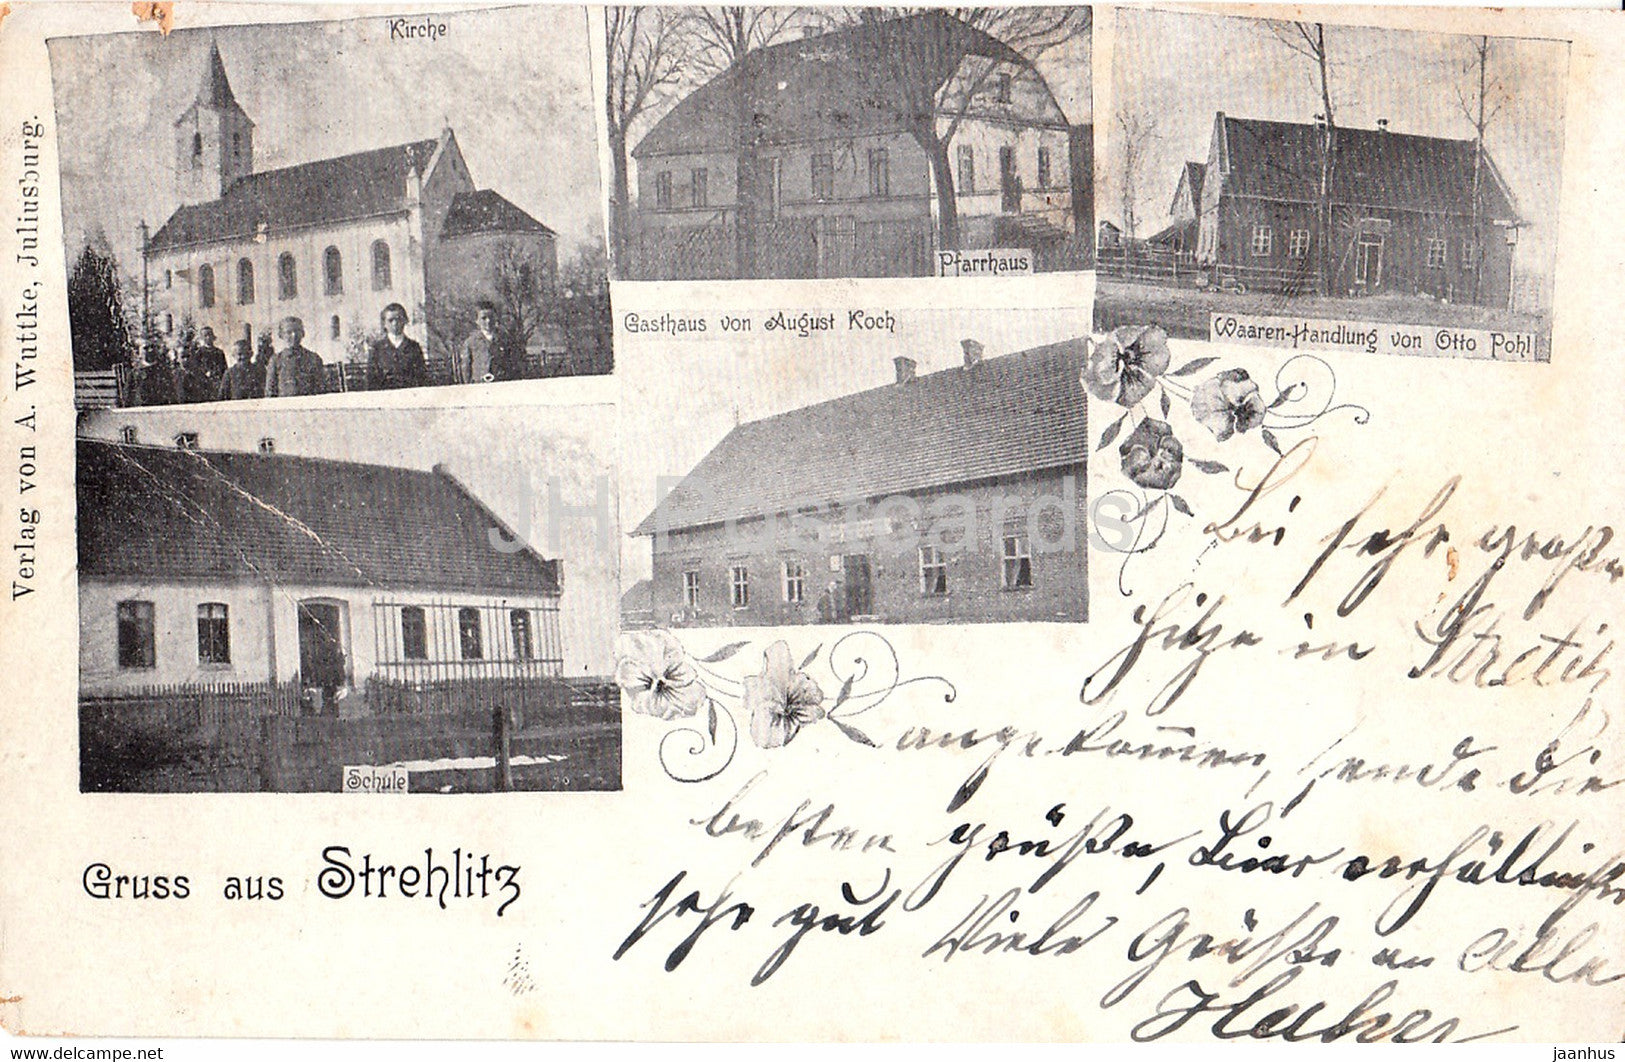 Kirche
Pfarrhaus
Waaren-Handlung von Otto Pohl
Gasthaus von August Koch
Schule
Verlag von A. Wuttke, Juliusburg.
Gruss aus Strehlitz
Bei sehr großer
Hitze in
angekom̄en, sende die
besten Grüße,
sehr gut Viele Grüße an Alle
JH Postcards
jaanhus